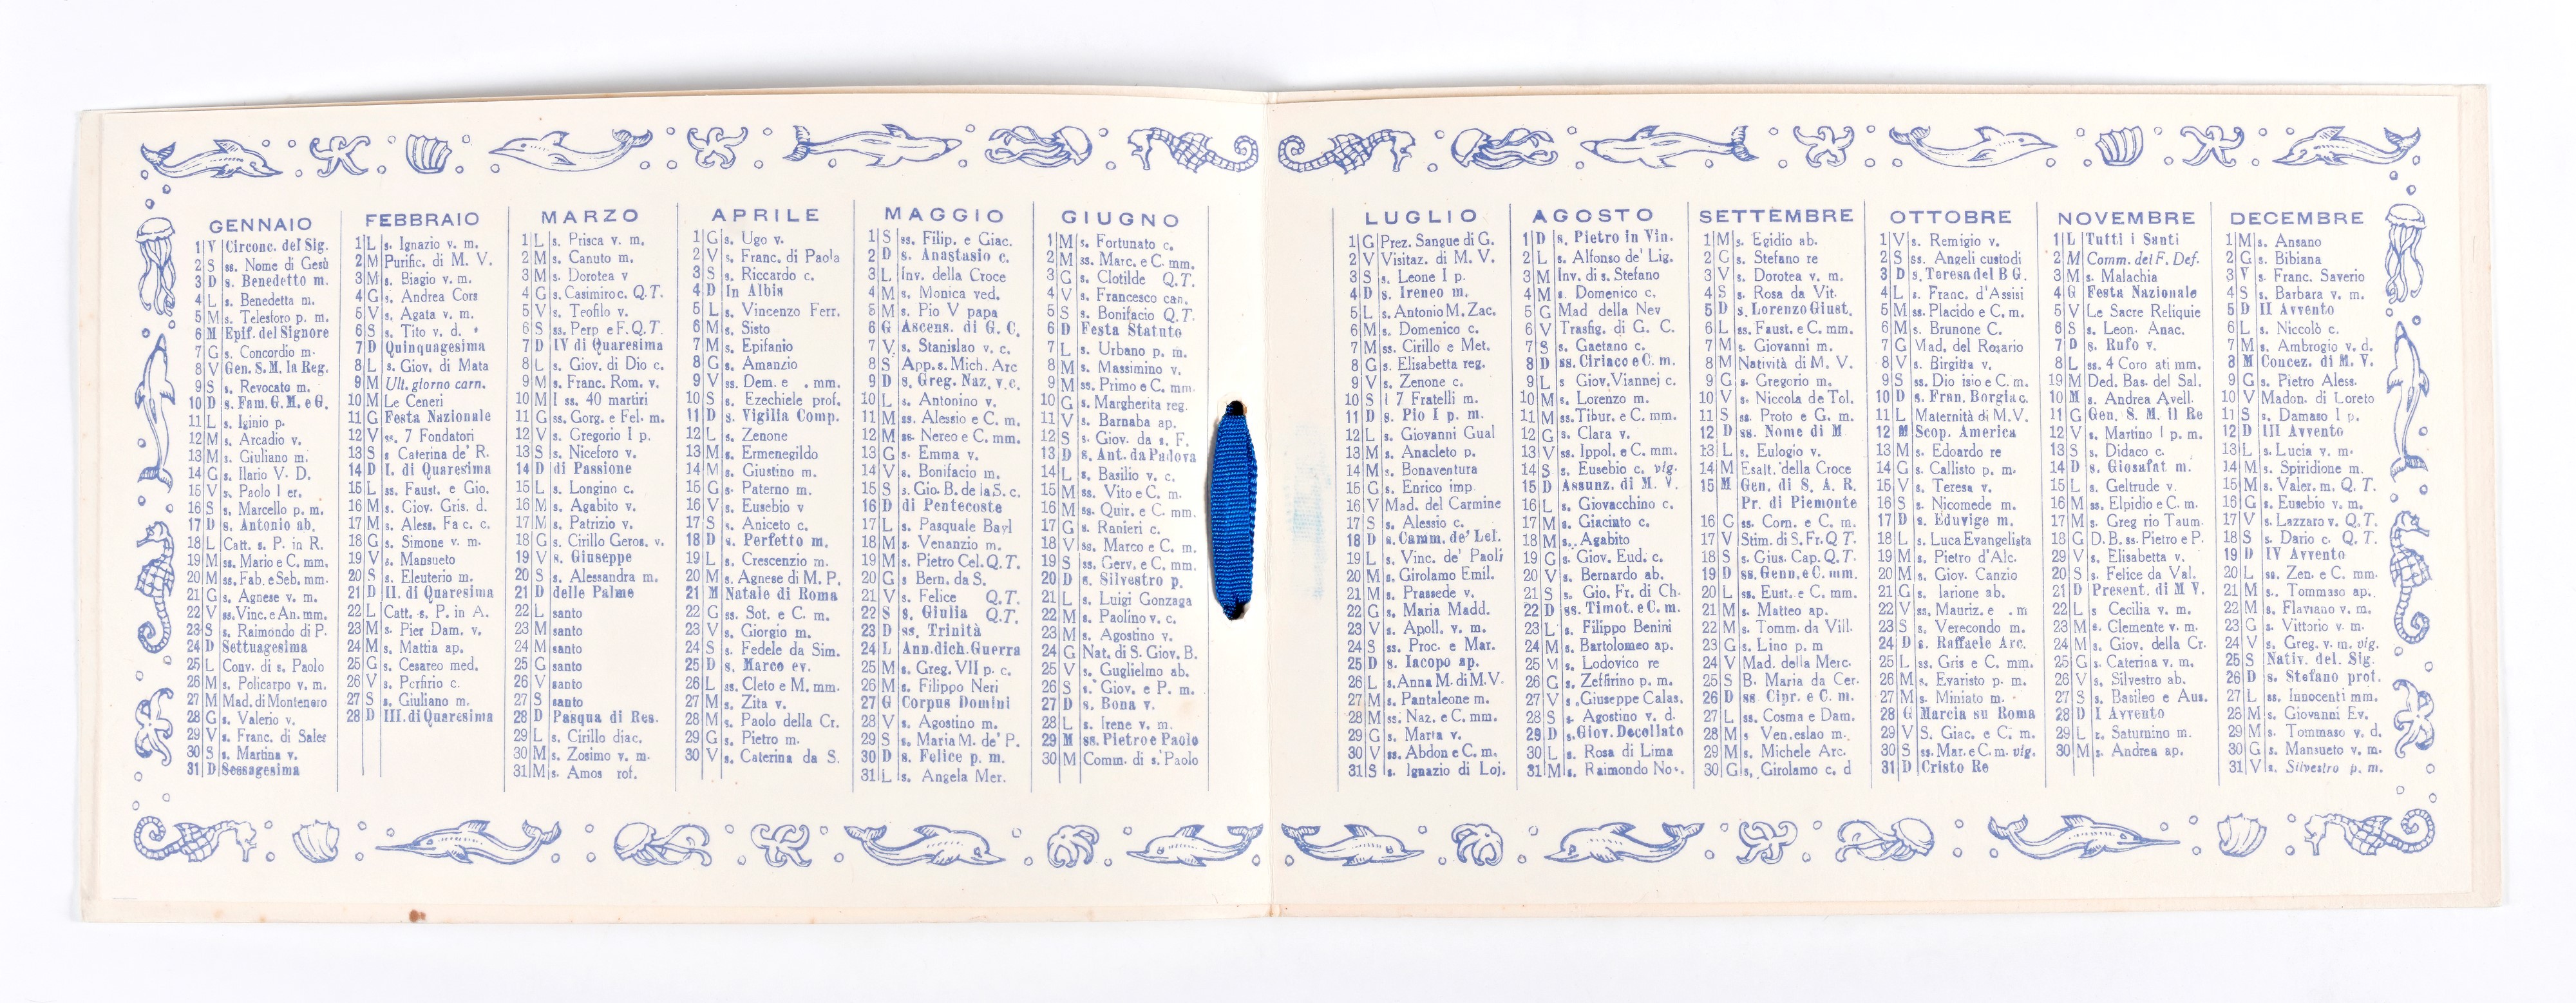 GENNAIO
1 V Circonc. del Sig.
2 S ss. Nome di Gesù
3 D s. Benedetto m.
4 L s. Benedetta m.
5 M s. Telesforo p. m.
6 M Epif. del Signore
7 G s. Concordio m.
8 V Gen. S. M. la Reg.
9 S s. Revocato m.
10 D s. Fam. G. M. e G.
11 L s. Iginio p.
12 M s. Arcadio v.
13 M s. Giuliano m.
14 G s. Ilario V. D.
15 V s. Paolo I er.
16 S s. Marcello p. m.
17 D s. Antonio ab.
18 L Catt. s. P. in R.
19 M ss. Mario e C. mm.
20 M ss. Fab. e Seb. mm.
21 G s. Agnese v. m.
22 V ss. Vinc. e An. mm.
23 S s. Raimondo di P.
24 D Settuagesima
25 L Conv. di s. Paolo
26 M s. Policarpo v. m.
27 M Mad. di Montenero
28 G s. Valerio v.
29 V s. Franc. di Sales
30 S s. Martina v.
31 D Sessagesima
FEBBRAIO
1 L s. Ignazio v. m.
2 M Purific. di M. V.
3 M s. Biagio v. m.
4 G s. Andrea Cors
5 V s. Agata v. m.
6 S s. Tito v. d.
7 D Quinquagesima
8 L s. Giov. di Mata
9 M Ult. giorno carn.
10 M Le Ceneri
11 G Festa Nazionale
12 V ss. 7 Fondatori
13 S s Caterina de' R.
14 D I. di Quaresima
15 L ss. Faust. e Gio.
16 M s. Giov. Gris. d.
17 M s. Aless. Fa c. c.
18 G s. Simone v. m.
19 V s. Mansueto
20 S s. Eleuterio m.
21 D II. di Quaresima
22 L Catt. s. P. in A.
23 M s. Pier Dam. v.
24 M s. Mattia ap.
25 G s. Cesareo med.
26 V s. Porfirio c.
27 S s. Giuliano m.
28 D III. di Quaresima
MARZO
1 L s. Prisca v. m.
2 M s. Canuto m.
3 M s. Dorotea v
4 G s. Casimiro c. Q. T.
5 V s. Teofilo v.
6 S ss. Perp e F. Q. T.
7 D IV di Quaresima
8 L s. Giov. di Dio c.
9 M s. Franc. Rom. v.
10 M I ss. 40 martiri
11 G ss. Gorg. e Fel. m.
12 V s. Gregorio I p.
13 S s. Niceforo v.
14 D di Passione
15 L s. Longino c.
16 M s. Agabito v.
17 M s. Patrizio v.
18 G s. Cirillo Geros. v.
19 V s. Giuseppe
20 S s. Alessandra m.
21 D delle Palme
22 L santo
23 M santo
24 M santo
25 G santo
26 V santo
27 S santo
28 D Pasqua di Res.
29 L s. Cirillo diac.
30 M s. Zosimo v. m.
31 M s. Amos rof.
APRILE
1 G s. Ugo v.
2 V s. Franc. di Paola
3 S s. Riccardo c.
4 D In Albis
5 L s. Vincenzo Ferr.
6 M s. Sisto
7 M s. Epifanio
8 G s. Amanzio
9 V ss. Dem. e . mm.
10 S s. Ezechiele prof.
11 D s. Vigilla Comp.
12 L s. Zenone
13 M s. Ermenegildo
14 M s. Giustino m.
15 G s. Paterno m.
16 V s. Eusebio v
17 S s. Aniceto c.
18 D s. Perfetto m.
19 L s. Crescenzio m.
20 M s. Agnese di M. P.
21 M Natale di Roma
22 G ss. Sot. e C. m.
23 V s. Giorgio m.
24 S s. Fedele da Sim.
25 D s. Marco ev.
26 L ss. Cleto e M. mm.
27 M s. Zita v.
28 M s. Paolo della Cr.
29 G s. Pietro m.
30 V s. Caterina da S.
MAGGIO
1 S ss. Filip. e Giac.
2 D s. Anastasio c.
3 L Inv. della Croce
4 M s. Monica ved.
5 M s. Pio V papa
6 G Ascens. di G. C.
7 V s. Stanislao v. c.
8 S App. s. Mich. Arc
9 D s. Greg. Naz. v. c.
10 L s. Antonino v.
11 M ss. Alessio e C. m.
12 M ss. Nereo e C. mm.
13 G s. Emma v.
14 V s. Bonifacio m.
15 S s. Gio. B. de la S. c.
16 D di Pentecoste
17 L s. Pasquale Bayl
18 M s. Venanzio m.
19 M s. Pietro Cel. Q. T.
20 G s Bern. da S.
21 V s. Felice Q. T.
22 S s. Giulia Q. T.
23 D ss. Trinità
24 L Ann. dich. Guerra
25 M s. Greg. VII p. c.
26 M s. Filippo Neri
27 G Corpus Domini
28 V s. Agostino m.
29 S s. Maria M. de' P.
30 D s. Felice p. m.
31 L s. Angela Mer.
GIUGNO
1 M s. Fortunato c.
2 M ss. Marc. e C. mm.
3 G s. Clotilde Q. T.
4 V s. Francesco can.
5 S s. Bonifacio Q. T.
6 D Festa Statuto
7 L s. Urbano p. m.
8 M s. Massimino v.
9 M ss. Primo e C. mm.
10 G s. Margherita reg.
11 V s. Barnaba ap.
12 S s. Giov. da s. F.
13 D s. Ant. da Padova
14 L s. Basilio v. c.
15 M ss. Vito e C. m.
16 M ss. Quir. e C. mm.
17 G s. Ranieri c.
18 V ss. Marco e C. m.
19 S ss. Gerv. e C. mm.
20 D s. Silvestro p.
21 L s. Luigi Gonzaga
22 M s. Paolino v. c.
23 M s. Agostino v.
24 G Nat. di S. Giov. B.
25 V s. Guglielmo ab.
26 S s. Giov. e P. m.
27 D s. Bona v.
28 L s. Irene v. m.
29 M ss. Pietro e Paolo
30 M Comm. di s. Paolo
LUGLIO
1 G Prez. Sangue di G.
2 V Visitaz. di M. V.
3 S s. Leone I p.
4 D s. Ireneo m.
5 L s. Antonio M. Zac.
6 M s. Domenico c.
7 M ss. Cirillo e Met.
8 G s. Elisabetta reg.
9 V s. Zenone c.
10 S i 7 Fratelli m.
11 D s. Pio I p. m.
12 L s. Giovanni Gual
13 M s. Anacleto p.
14 M s. Bonaventura
15 G s. Enrico imp.
16 V Mad. del Carmine
17 S s. Alessio c.
18 D s. Camm. de' Lel.
19 L s. Vinc. de' Paoli
20 M s. Girolamo Emil.
21 M s. Prassede v.
22 G s. Maria Madd.
23 V s. Apoll. v. m.
24 S ss. Proc. e Mar.
25 D s. Iacopo ap.
26 L s. Anna M. di M. V.
27 M s. Pantaleone m.
28 M ss. Naz. e C. mm.
29 G s. Marta v.
30 V ss. Abdon e C. m.
31 S s. Ignazio di Loj.
AGOSTO
1 D s. Pietro in Vin.
2 L s. Alfonso de' Lig.
3 M Inv. di s. Stefano
4 M s. Domenico c.
5 G Mad della Nev
6 V Trasfig. di G. C.
7 S s. Gaetano c.
8 D ss. Ciriaco e C. m.
9 L s Giov. Viannej c.
10 M s. Lorenzo m.
11 M ss. Tibur. e C. mm.
12 G s. Clara v.
13 V ss. Ippol. e C. mm.
14 S s. Eusebio c. vig.
15 D Assunz. di M. V.
16 L s. Giovacchino c.
17 M s. Giacinto c.
18 M s. Agabito
19 G s. Giov. Eud. c.
20 V s. Bernardo ab.
21 S s. Gio. Fr. di Ch.
22 D ss. Timot. e C. m.
23 L s. Filippo Benini
24 M s. Bartolomeo ap.
25 M s. Lodovico re
26 G s. Zeffirino p. m.
27 V s. Giuseppe Calas.
28 S s. Agostino v. d.
29 D s. Giov. Decollato
30 L s. Rosa di Lima
31 M s. Raimondo No.
SETTEMBRE
1 M s. Egidio ab.
2 G s. Stefano re
3 V s. Dorotea v. m.
4 S s. Rosa da Vit.
5 D s. Lorenzo Giust.
6 L ss. Faust. e C. mm.
7 M s. Giovanni m.
8 M Natività di M. V.
9 G s. Gregorio m.
10 V s. Niccola de Tol.
11 S ss. Proto e G. m.
12 D ss. Nome di M
13 L s. Eulogio v.
14 M Esalt. della Croce
15 M Gen. di S. A. R.
Pr. di Piemonte
16 G ss. Corn. e C. m.
17 V Stim. di S. Fr. Q T.
18 S s. Gius. Cap. Q. T.
19 D ss. Genn. e C. mm.
20 L ss. Eust. e C. mm.
21 M s. Matteo ap.
22 M s. Tomm. da Vill.
23 G s. Lino p. m
24 V Mad. della Merc.
25 S B. Maria da Cer.
26 D ss Cipr. e C. m.
27 L ss. Cosma e Dam.
28 M s. Ven.eslao m.
29 M s. Michele Arc.
30 G s. Girolamo c. d
OTTOBRE
1 V s. Remigio v.
2 S ss. Angeli custodi
3 D s. Teresa del B G.
4 L s. Franc. d'Assisi
5 M ss. Placido e C. m.
6 M s. Brunone C.
7 G Mad. del Rosario
8 V s. Birgitta v.
9 S ss. Dio isio e C. m.
10 D s. Fran. Borgiac.
11 L Maternità di M. V.
12 M Scop. America
13 M s. Edoardo re
14 G s. Callisto p. m.
15 V s. Teresa v.
16 S s. Nicomede m.
17 D s. Eduvige m.
18 L s. Luca Evangelista
19 M s. Pietro d'Alc.
20 M s. Giov. Canzio
21 G s. Iarione ab.
22 V ss. Mauriz. e . m
23 S s. Verecondo m.
24 D s. Raffaele Arc.
25 L ss. Gris e C. mm.
26 M s. Evaristo p. m.
27 M s. Miniato m.
28 G Marcia su Roma
29 V S. Giac. e C. m.
30 S ss. Mar. e C. m. vig.
31 D Cristo Re
NOVEMBRE
1 L Tutti i Santi
2 M Comm. dei F. Def.
3 M s. Malachia
4 G Festa Nazionale
5 V Le Sacre Reliquie
6 S s. Leon. Anac.
7 D s. Rufo v.
8 L ss. 4 Coro ati mm.
19 M Ded. Bas. del Sal.
10 M s. Andrea Avell.
11 G Gen. S. M. il Re
12 V s. Martino I p. m.
13 S s. Didaco c.
14 D s. Giosafat. m.
15 L s. Geltrude v.
16 M ss. Elpidio e C. m.
17 M s. Greg rio Taum.
18 G D. B. ss. Pietro e P.
19 V s. Elisabetta v.
20 S s. Felice da Val.
21 D Present. di M V.
22 L s Cecilia v. m.
23 M s. Clemente v. m.
24 M s. Giov. della Cr.
25 G s. Caterina v. m.
26 V s. Silvestro ab.
27 S s. Basileo e Aus.
28 D I Avvento
29 L s. Saturnino m.
30 M s. Andrea ap.
DECEMBRE
1 M s. Ansano
2 G s. Bibiana
3 V s. Franc. Saverio
4 S s. Barbara v. m.
5 D II Avvento
6 L s. Niccolò c.
7 M s. Ambrogio v. d.
8 M Concez. di M. V.
9 G s. Pietro Aless.
10 V Madon. di Loreto
11 S s. Damaso I p.
12 D III Avvento
13 L s. Lucia v. m.
14 M s. Spiridione m.
15 M s. Valer. m. Q. T.
16 G s. Eusebio v. m.
17 V s. Lazzaro v. Q. T.
18 S s. Dario c. Q. T.
19 D IV Avvento
20 L ss. Zen. e C. mm.
21 M s. Tommaso ap.
22 M s. Flaviano v. m.
23 G s. Vittorio v. m.
24 V s. Greg. v. m. vig.
25 S Nativ. del. Sig.
26 D s. Stefano prot.
27 L ss. Innocenti mm.
28 M s. Giovanni Ev.
29 M s. Tommaso v. d.
30 G s. Mansueto v. m.
31 V s. Silvestro p. m.